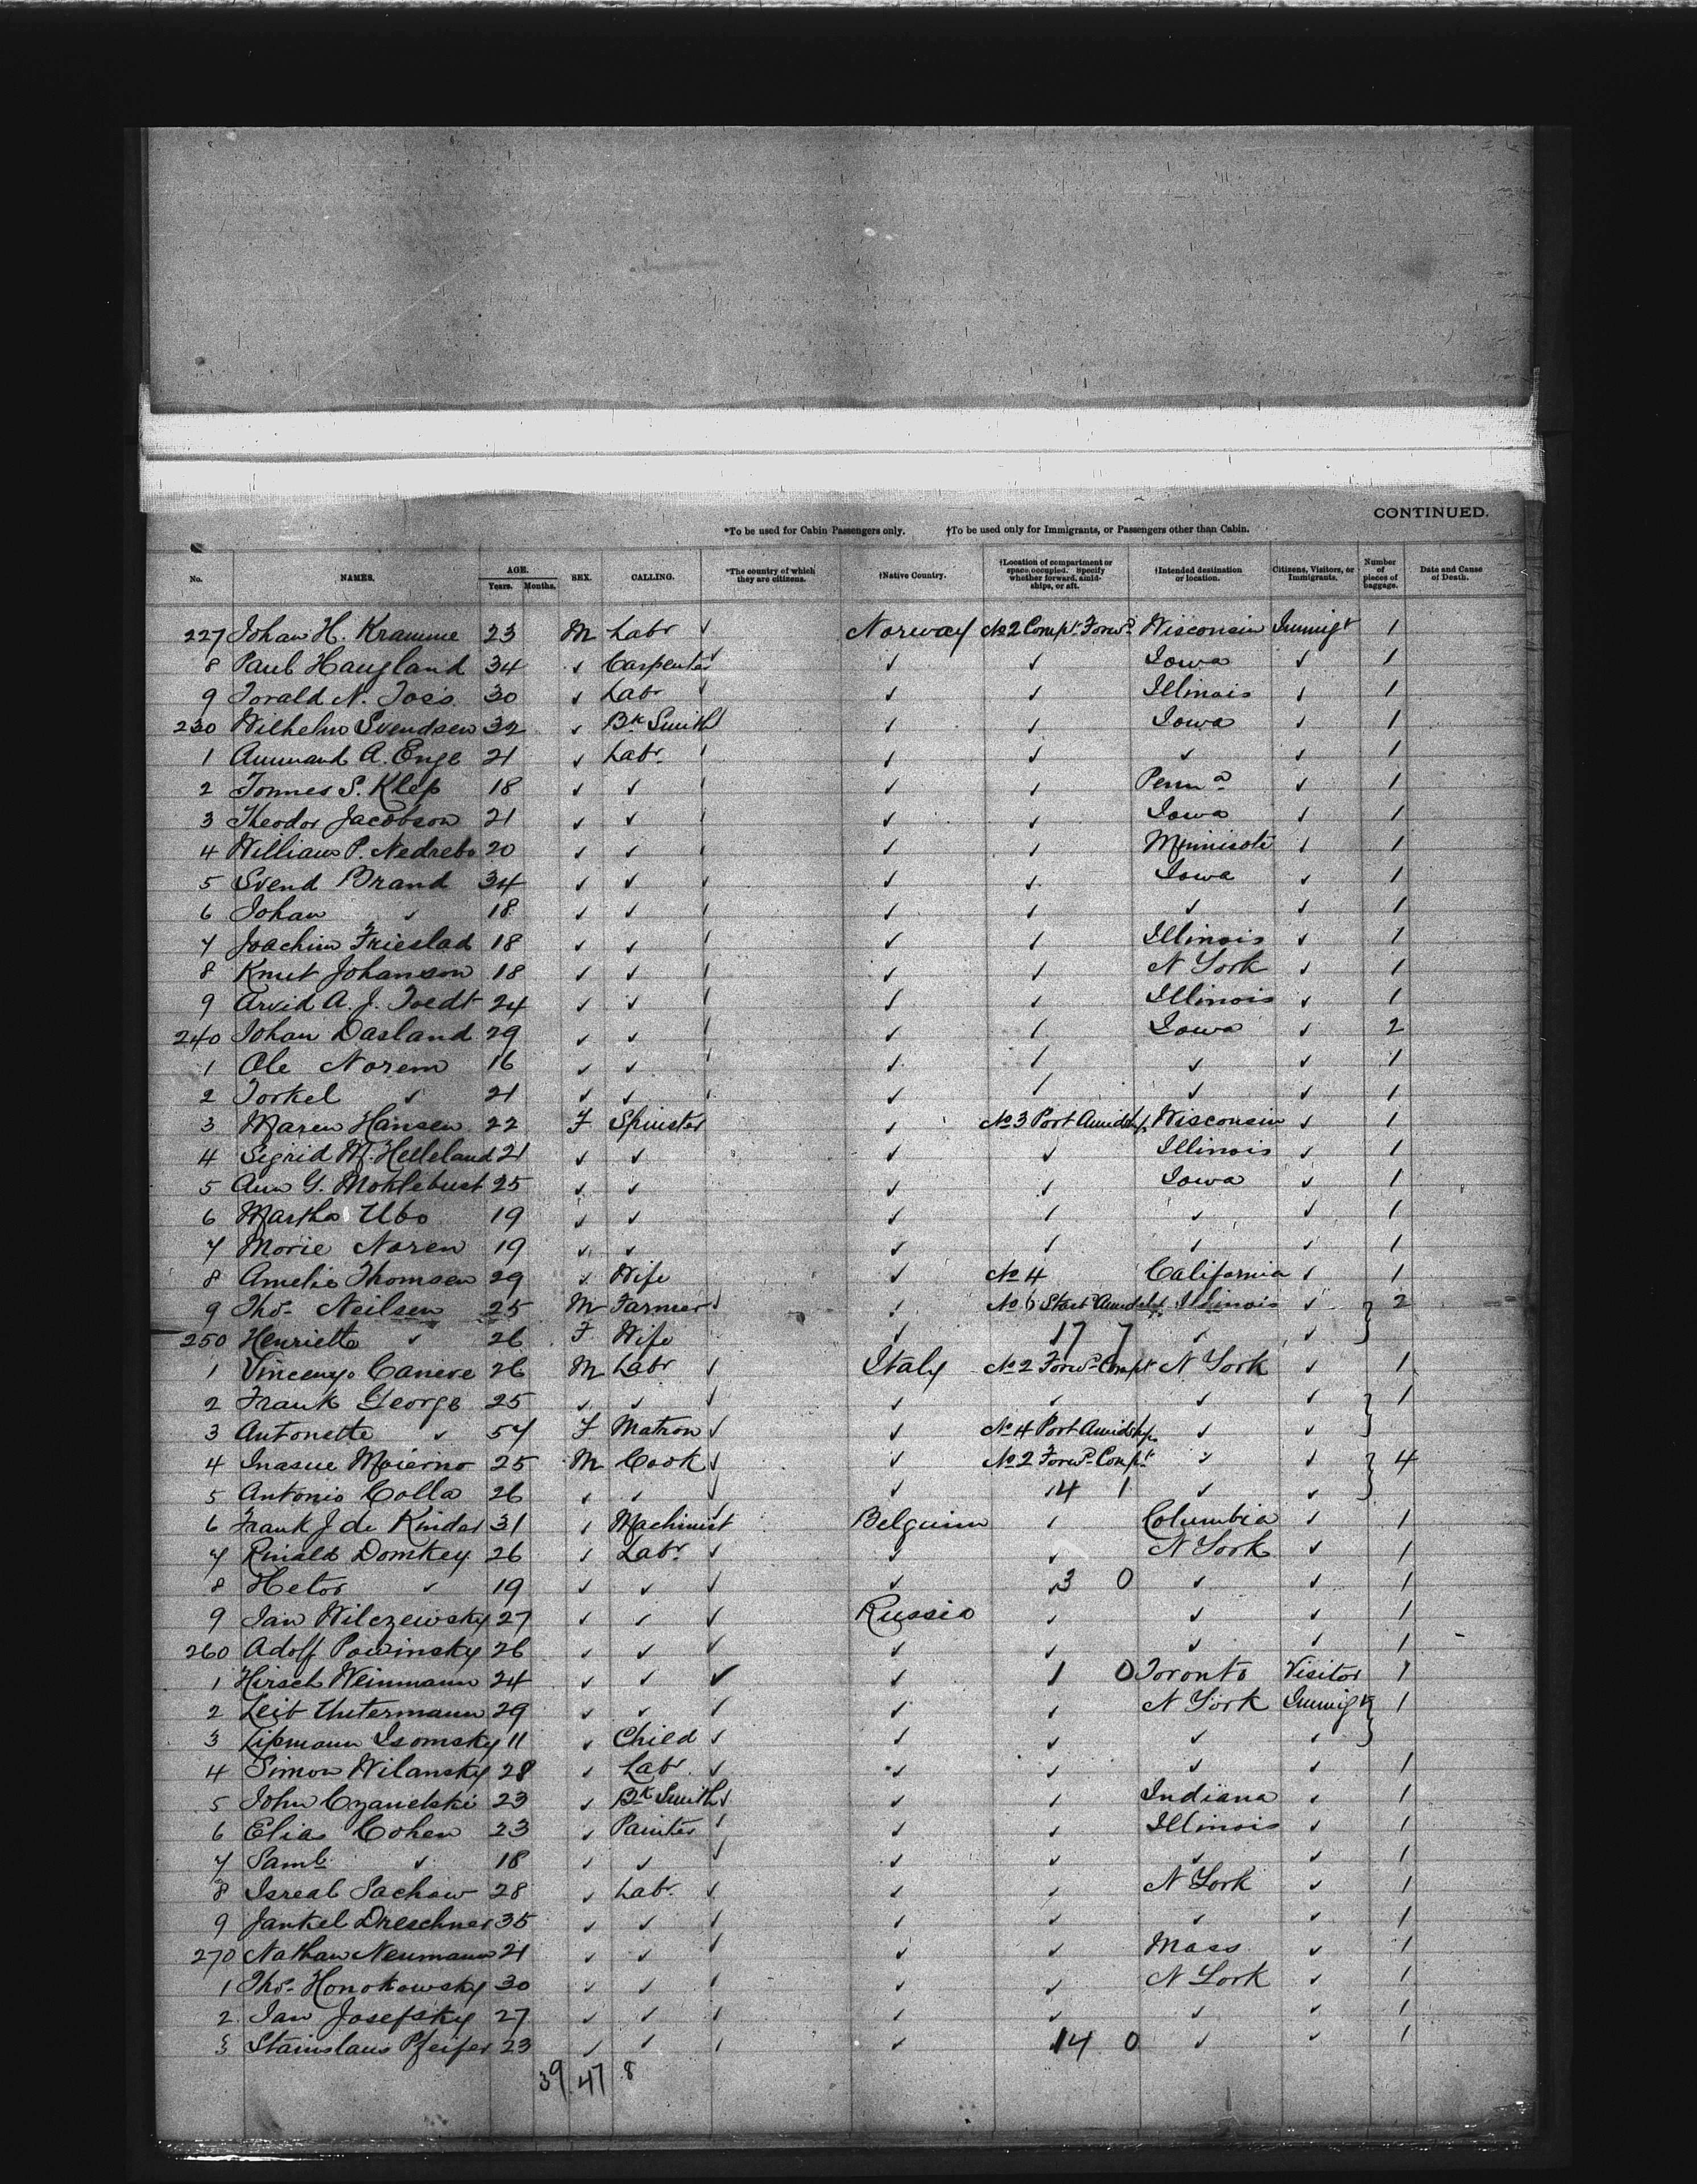 CONTINUED.
*To be used for Cabin Passengers only. †To be used only for Immigrants, or Passengers other than Cabin.
No. NAMES. AGE. Years. Months. SEX. CALLING. *The country of which they are citizens. †Native Country. †Location of compartment or space occupied. Specify whether forward, amidships, or aft. †Intended destination or location. Citizens, Visitors, or Immigrants. Number of pieces of baggage. Date and Cause of Death.
227 Johan H. Kramme 23 M Labr ✓ Norway No 2 Compt Forwd Wisconsin Immigt 1
8 Paul Haugland 34 ✓ Carpenter ✓ ✓ ✓ Iowa ✓ 1
9 Torald N. 30 ✓ Labr ✓ ✓ ✓ Illinois ✓ 1
230 Wilhelm Svendsen 32 ✓ Bk Smith ✓ ✓ ✓ Iowa ✓ 1
1 A. Enge 21 ✓ Labr ✓ ✓ ✓ ✓ ✓ 1
2 Tonnes S. Klep 18 ✓ ✓ ✓ ✓ ✓ Penna ✓ 1
3 Theodor Jacobson 21 ✓ ✓ ✓ ✓ ✓ Iowa ✓ 1
4 William P. Nedrebo 20 ✓ ✓ ✓ ✓ ✓ Minnisota ✓ 1
5 Svend Brand 34 ✓ ✓ ✓ ✓ ✓ Iowa ✓ 1
6 Johan ✓ 18 ✓ ✓ ✓ ✓ ✓ ✓ ✓ 1
7 Joachim Friestad 18 ✓ ✓ ✓ ✓ ✓ Illinois ✓ 1
8 Knut Johanson 18 ✓ ✓ ✓ ✓ ✓ N York ✓ 1
9 Arvid A. J. Tvedt 24 ✓ ✓ ✓ ✓ ✓ Illinois ✓ 1
240 Johan Dasland 29 ✓ ✓ ✓ ✓ ✓ Iowa ✓ 2
1 Ole Norem 16 ✓ ✓ ✓ ✓ ✓ ✓ ✓ 1
2 Torkel ✓ 21 ✓ ✓ ✓ ✓ ✓ ✓ ✓ 1
3 Maren Hansen 22 F Spinster ✓ No 3 Port Amidship Wisconsin ✓ 1
4 Sigrid M. Helleland 21 ✓ ✓ ✓ ✓ Illinois ✓ 1
5 Ann G. Moklebust 25 ✓ ✓ ✓ ✓ Iowa ✓ 1
6 Martha Ubo 19 ✓ ✓ ✓ ✓ ✓ ✓ 1
7 Morie Noren 19 ✓ ✓ ✓ ✓ ✓ ✓ 1
8 Amelie Thomsen 29 ✓ Wife ✓ No 4 California ✓ 1
9 Thos. Neilsen 25 M Farmer ✓ ✓ No 6 Starb Amidship Illinois ✓ } 2
250 Henriette ✓ 26 F Wife ✓ 17 7 ✓ ✓
1 Vincenzo Canere 26 M Labr ✓ Italy No 2 Forwd Compt N York ✓ 1
2 Frank George 25 ✓ ✓ ✓ ✓ ✓ ✓ ✓ } 1
3 Antonette ✓ 54 F Matron ✓ ✓ No 4 Port Amidship ✓ ✓
4 Maierno 25 M Cook ✓ ✓ No 2 Forwd Compt ✓ ✓ } 4
5 Antonio Colla 26 ✓ ✓ ✓ ✓ 14 1 ✓ ✓
6 Frank J de Kinder 31 ✓ Machinist Belguim ✓ Columbia ✓ 1
7 Rinald Domkey 26 ✓ Labr ✓ ✓ ✓ N York ✓ 1
8 Hetor ✓ 19 ✓ ✓ ✓ ✓ 3 0 ✓ ✓ 1
9 Jan Wilczewsky 27 ✓ ✓ ✓ Russia ✓ ✓ ✓ 1
260 Adolf Powinsky 26 ✓ ✓ ✓ ✓ ✓ ✓ ✓ 1
1 Hirsch Weinmann 24 ✓ ✓ ✓ ✓ 1 0 Toronto Visitor 1
2 Leib Untermann 29 ✓ ✓ ✓ ✓ ✓ N York Immigt } 1
3 Lipmann Isomsky 11 ✓ Child ✓ ✓ ✓ ✓ ✓
4 Simon Wilansky 28 ✓ Labr ✓ ✓ ✓ ✓ ✓ 1
5 John Czanelski 23 ✓ Bk Smith ✓ ✓ ✓ Indiana ✓ 1
6 Elias Cohen 23 ✓ Painter ✓ ✓ ✓ Illinois ✓ 1
7 Saml ✓ 18 ✓ ✓ ✓ ✓ ✓ ✓ ✓ 1
8 Isreal Sachow 28 ✓ Labr ✓ ✓ ✓ N York ✓ 1
9 Jankel Dreschner 35 ✓ ✓ ✓ ✓ ✓ ✓ ✓ 1
270 Nathan Neumann 21 ✓ ✓ ✓ ✓ ✓ Mass ✓ 1
1 Thos. Honokowsky 30 ✓ ✓ ✓ ✓ ✓ N York ✓ 1
2 Jan Josefsky 27 ✓ ✓ ✓ ✓ ✓ ✓ ✓ 1
3 Stainslaus Pfeifer 23 ✓ ✓ ✓ ✓ 14 0 ✓ ✓ 1
39 47 8